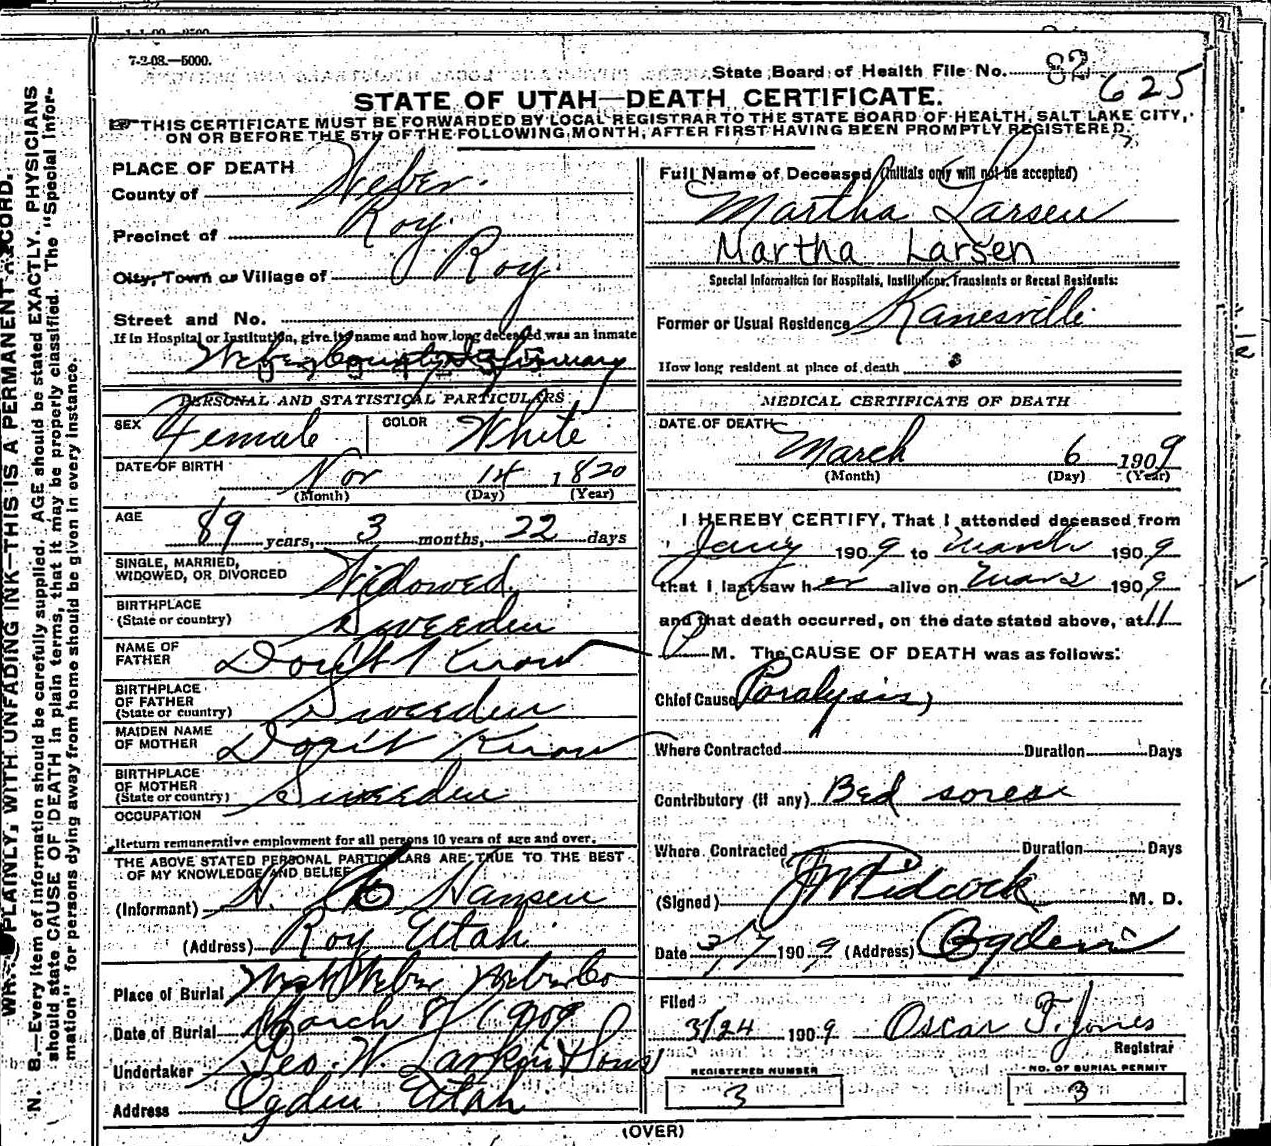 7-2-08.—5000.
State Board of Health File No. 82 625
STATE OF UTAH—DEATH CERTIFICATE.
☞ THIS CERTIFICATE MUST BE FORWARDED BY LOCAL REGISTRAR TO THE STATE BOARD OF HEALTH, SALT LAKE CITY,
ON OR BEFORE THE 5TH OF THE FOLLOWING MONTH, AFTER FIRST HAVING BEEN PROMPTLY REGISTERED.
PLACE OF DEATH
County of Weber.
Precinct of Roy.
City, Town or Village of Roy.
Street and No.
If in Hospital or Institution, give its name and how long deceased was an inmate
Weber County Infirmary
PERSONAL AND STATISTICAL PARTICULARS
SEX Female COLOR White
DATE OF BIRTH Nov 14 1820
(Month) (Day) (Year)
AGE 89 years, 3 months, 22 days
SINGLE, MARRIED,
WIDOWED, OR DIVORCED Widowed
BIRTHPLACE
(State or country) Sweeden
NAME OF
FATHER Don't Know
BIRTHPLACE
OF FATHER
(State or country) Sweeden
MAIDEN NAME
OF MOTHER Don't Know
BIRTHPLACE
OF MOTHER
(State or country) Sweeden
OCCUPATION
Return remunerative employment for all persons 10 years of age and over.
THE ABOVE STATED PERSONAL PARTICULARS ARE TRUE TO THE BEST
OF MY KNOWLEDGE AND BELIEF
(Informant) Hansen
(Address) Roy Utah.
Place of Burial West Weber Weber Co
Date of Burial March 8/1909
Undertaker Geo. W. Larkin & Sons
Address Ogden Utah
Full Name of Deceased (Initials only will not be accepted)
Martha Larsen
Martha Larsen
Special Information for Hospitals, Institutions, Transients or Recent Residents:
Former or Usual Residence Kanesville
How long resident at place of death
MEDICAL CERTIFICATE OF DEATH
DATE OF DEATH
March 6 1909
(Month) (Day) (Year)
I HEREBY CERTIFY, That I attended deceased from
Jany 1909 to March 1909
that I last saw her alive on Mar 2 1909
and that death occurred, on the date stated above, at 11
P M. The CAUSE OF DEATH was as follows:
Chief Cause Paralysis,
Where Contracted Duration Days
Contributory (if any) Bed sores
Where Contracted Duration Days
(Signed) J W Pidcock M. D.
Date 3/7 1909 (Address) Ogden
Filed
3/24 1909 Oscar F. Jones
Registrar
REGISTERED NUMBER NO. OF BURIAL PERMIT
3 3
(OVER)
PLAINLY, WITH UNFADING INK—THIS IS A PERMANENT RECORD.
N. B.—Every item of information should be carefully supplied. AGE should be stated EXACTLY. PHYSICIANS
should state CAUSE OF DEATH in plain terms, that it may be properly classified. The "Special Infor-
mation" for persons dying away from home should be given in every instance.